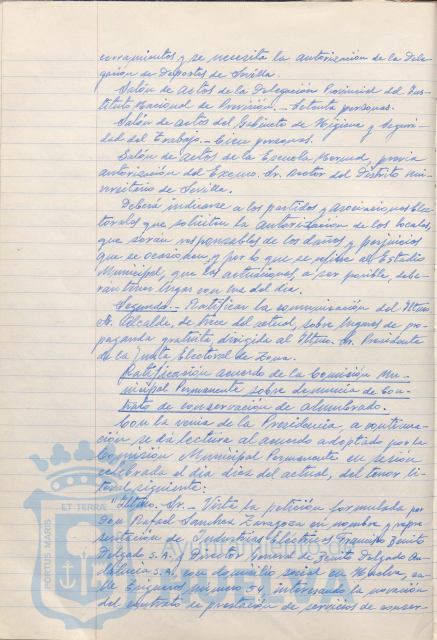 cerramientos y se necesita la autorización de la Dele-
gación de Deportes de Sevilla.
Salón de actos de la Delegación Provincial del Ins-
tituto Nacional de Previsión.- Setenta personas.
Salón de actos del Gabinete de Higiene y Seguri-
dad del Trabajo.- Cien personas.
Salón de actos de la Escuela Normal, previa
autorización del Excmo. Sr. Rector del Distrito Uni-
versitario de Sevilla.
Deberá indicarse a los partidos y asociaciones Elec-
torales que solicitan la autorización de los locales,
que serán responsables de los daños y perjuicios
que se ocasionen, y por lo que se refiere al Estadio
Municipal, que las actuaciones a ser posible, debe-
rán tener lugar con luz del día.
Segundo.- Ratificar la comunicación del Iltmo.
Sr. Alcalde, de trece del actual, sobre lugares de pro-
paganda gratuita, dirigida al Iltmo. Sr. Presidente
de la Junta Electoral de Zona.
Ratificación acuerdo de la Comisión Mu-
nicipal Permanente sobre denuncia de Con-
trato de conservación de alumbrado.
Con la venia de la Presidencia, a continua-
ción se dá lectura al acuerdo adoptado por la
Comisión Municipal Permanente en sesión
celebrada el día diez del actual, del tenor li-
teral siguiente:
"Iltmo. Sr.- Vista la petición formulada por
Don Rafael Sanchez Zaragoza en nombre y repre-
sentación de Industrias Eléctricas Francisco Benito
Delgado S.A. y Director General de Benito Delgado An-
dalucía S.A. con domicilio social en Huelva, ca-
lle número 54, interesando la novación
del contrato de prestación de servicios de conser-
ET TERRA
PORTUS MARIS